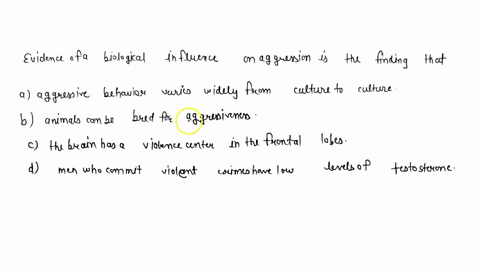 Evidence of a biological influence on aggression is the finding that
a) aggressive behavior varies widely from culture to culture.
b) animals can be bred for aggressiveness.
c) the brain has a violence center in the frontal lobes.
d) men who commit violent crimes have low levels of testosterone.